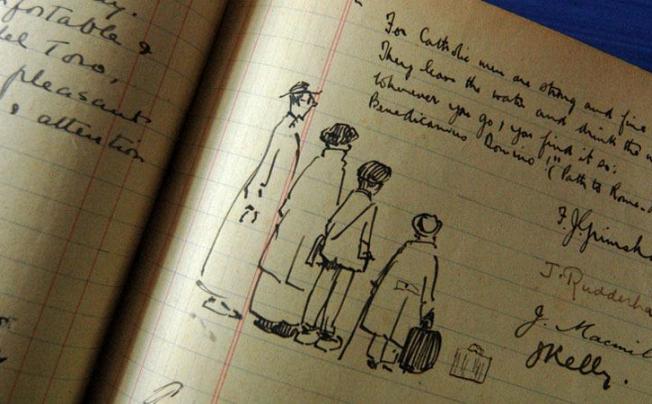 y.
fortable &
del Toro,
pleasants
& attention
For Catholic men are strong and fine
They leave the water and drink the
Whenever you go, you find it so:
Benedicamus Domino!" (Path to Rome.
J. Rudderha
J. Macmil
JKelly.